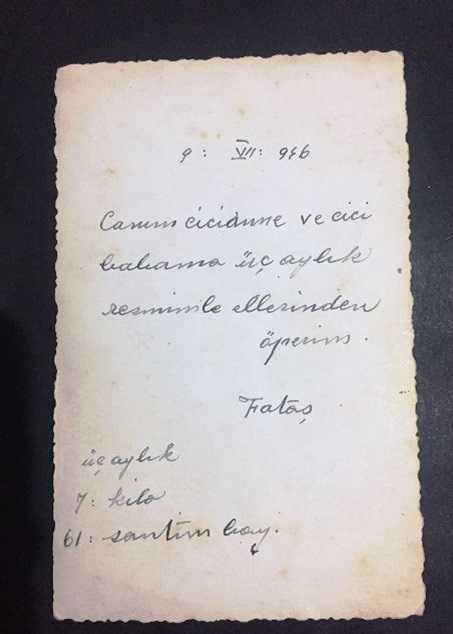 9: VII: 946
Canım ciciānne ve cici
babama üç aylık
resmimle ellerinden
öperim.
Fatoş
üç aylık
7: kilo
61: santim boy.